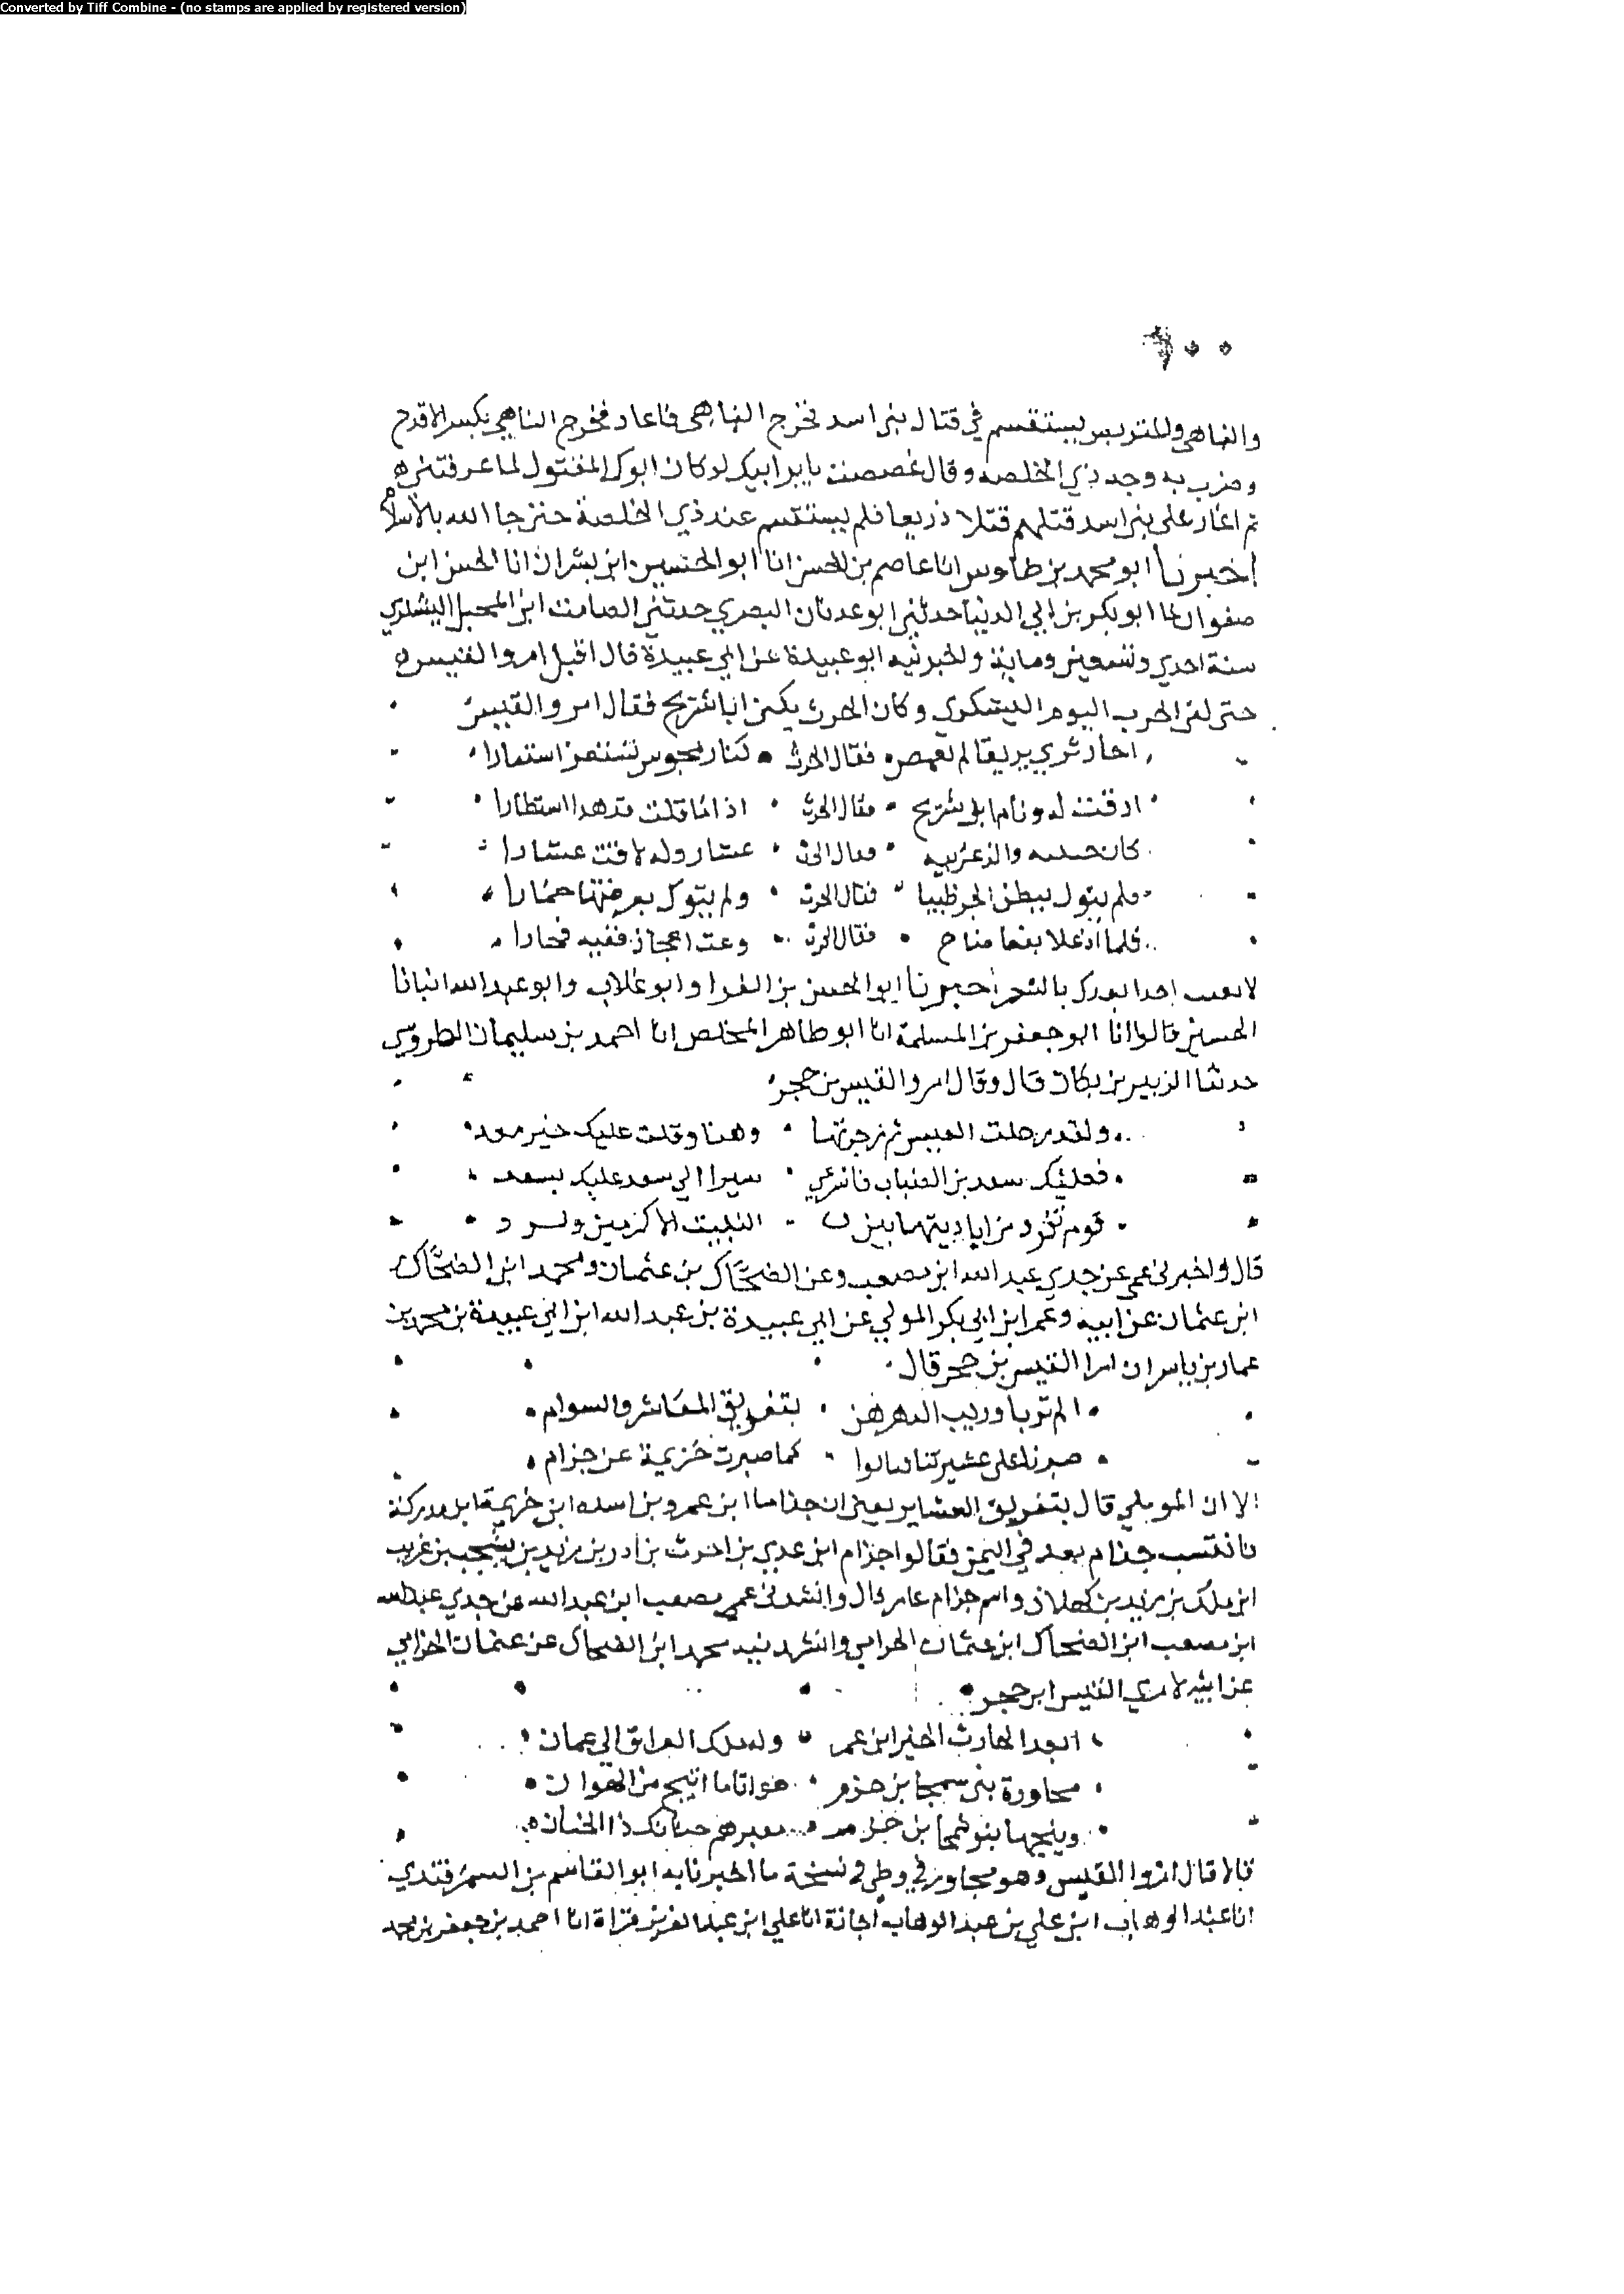 Converted by Tiff Combine - (no stamps are applied by registered version)
والناهي والمتربص يستقسم في قتال بني اسد فخرج الناهي فاعاد فخرج الناهي فكسر الاقدح
وضرب به وجه ذي الخلصه وقال عضضت باير ابيك لو كان ابوك المقتول لما عوقتني ه
ثم اغار على بني اسد قتلهم قتلا ذريعا فلم يستقسم عند ذي الخلصة حتى جا الله بالاسلام
اخبرنا ابو محمد بن طاوس انا عاصم بن الحسن انا ابو الحسين ابن بشران انا الحسن ابن
صفوان نا ابو بكر بن ابي الدنيا حدثني ابو عدنان البصري حدثني الصامت ابن المحبل اليشكري
سنة احدي وتسعين وماية واخبرنيه ابو عبيدة عن ابي عبيدة قال اقبل امرو القيس ه
حتى لقي الحرب اليوم اليشكري وكان الحرث يكنى ابا شريح فقال امرو القيس
احار تري بريقا لم يغمض فقال الحرث كنار مجوس تستعر استعارا
ارقت له ونام ابو شريح فقال الحرث اذا ما قلت قد هدا استطارا
كان فقال الحرث عشار وله لاقت عشارا
فلم يترك ببطن الجو ظبيا فقال الحرث ولم يترك بعرضتها حمارا
فلما ان علا فقال الحرث وهت اعجاز ففيه فحارا
احدا بعدك بالشعر اخبرنا ابو الحسين بن الفرا وابو غالب وابو عبد الله انبانا
الحسين قالوا انا ابو جعفر بن المسلمة انا ابو طاهر المخلص انا احمد بن سليمان الطوسي
حدثنا الزبير بن بكار قال وقال امرو القيس بن حجر
ولقد رحلت العيس ثم زجرتها وهنا وقلت عليك خير معد
فعليك سعد بن الضباب فاسرعي سيرا الي سعد عليك بسعد
قوم تفرد من اياد بيتها بين النبيت الاكرمين و
قال واخبرني عمي عن جدي عبد الله ابن مصعب وعن الضحاك بن عثمان ومحمد ابن الضحاك
ابن عثمان عن ابيه وعمر ابن ابي بكر المولي عن ابي عبيدة بن عبد الله ابن ابي عبيدة بن محمد بن
عمار بن ياسر ان امرا القيس بن حجر قال
الم تربا وريب الدهر رهن بتفريق المعاشر والسوام
صبرنا على عشيرتنا كما صبرت خزيمة عن جزام
الا ان الموملي قال بتفريق العشاير يعني ان جذاما ابن عمرو بن اسده ابن خزيمة ابن مدركة
فانتسب جذام بعد في اليمن فقالوا جزام ابن عدي بن احرث بن ادر بن زيد بن يشجب بن غريب
ابن ملك بن زيد بن كهلان واسم جزام عامر قال وانشدني عمي مصعب ابن عبد الله عن جدي عبد الله
ابن مصعب ابن الضحاك ابن عثمان الحرامي وانشدنيه محمد ابن الضحاك عن عثمان الحزامي
عن ابيه لامري القيس ابن حجر
ابعد الحارث الخير ابن عمر وله ملك العراق الي عمان
مجاورة بني سمجا بن حزم هوانا ما اتيح من الهوان
ويمنحها بنو شمجا بن معيزهم حنانك ذا الحنان ه
قالا قال امرو القيس وهو مجاور في وطي في نسخة ما اخبرنا به ابو القاسم بن السمرقندي
انا عبد الوهاب ابن علي بن عبد الوهاب اجازة انا علي ابن عبد العزيز قراة انا احمد بن جعفر بن محمد